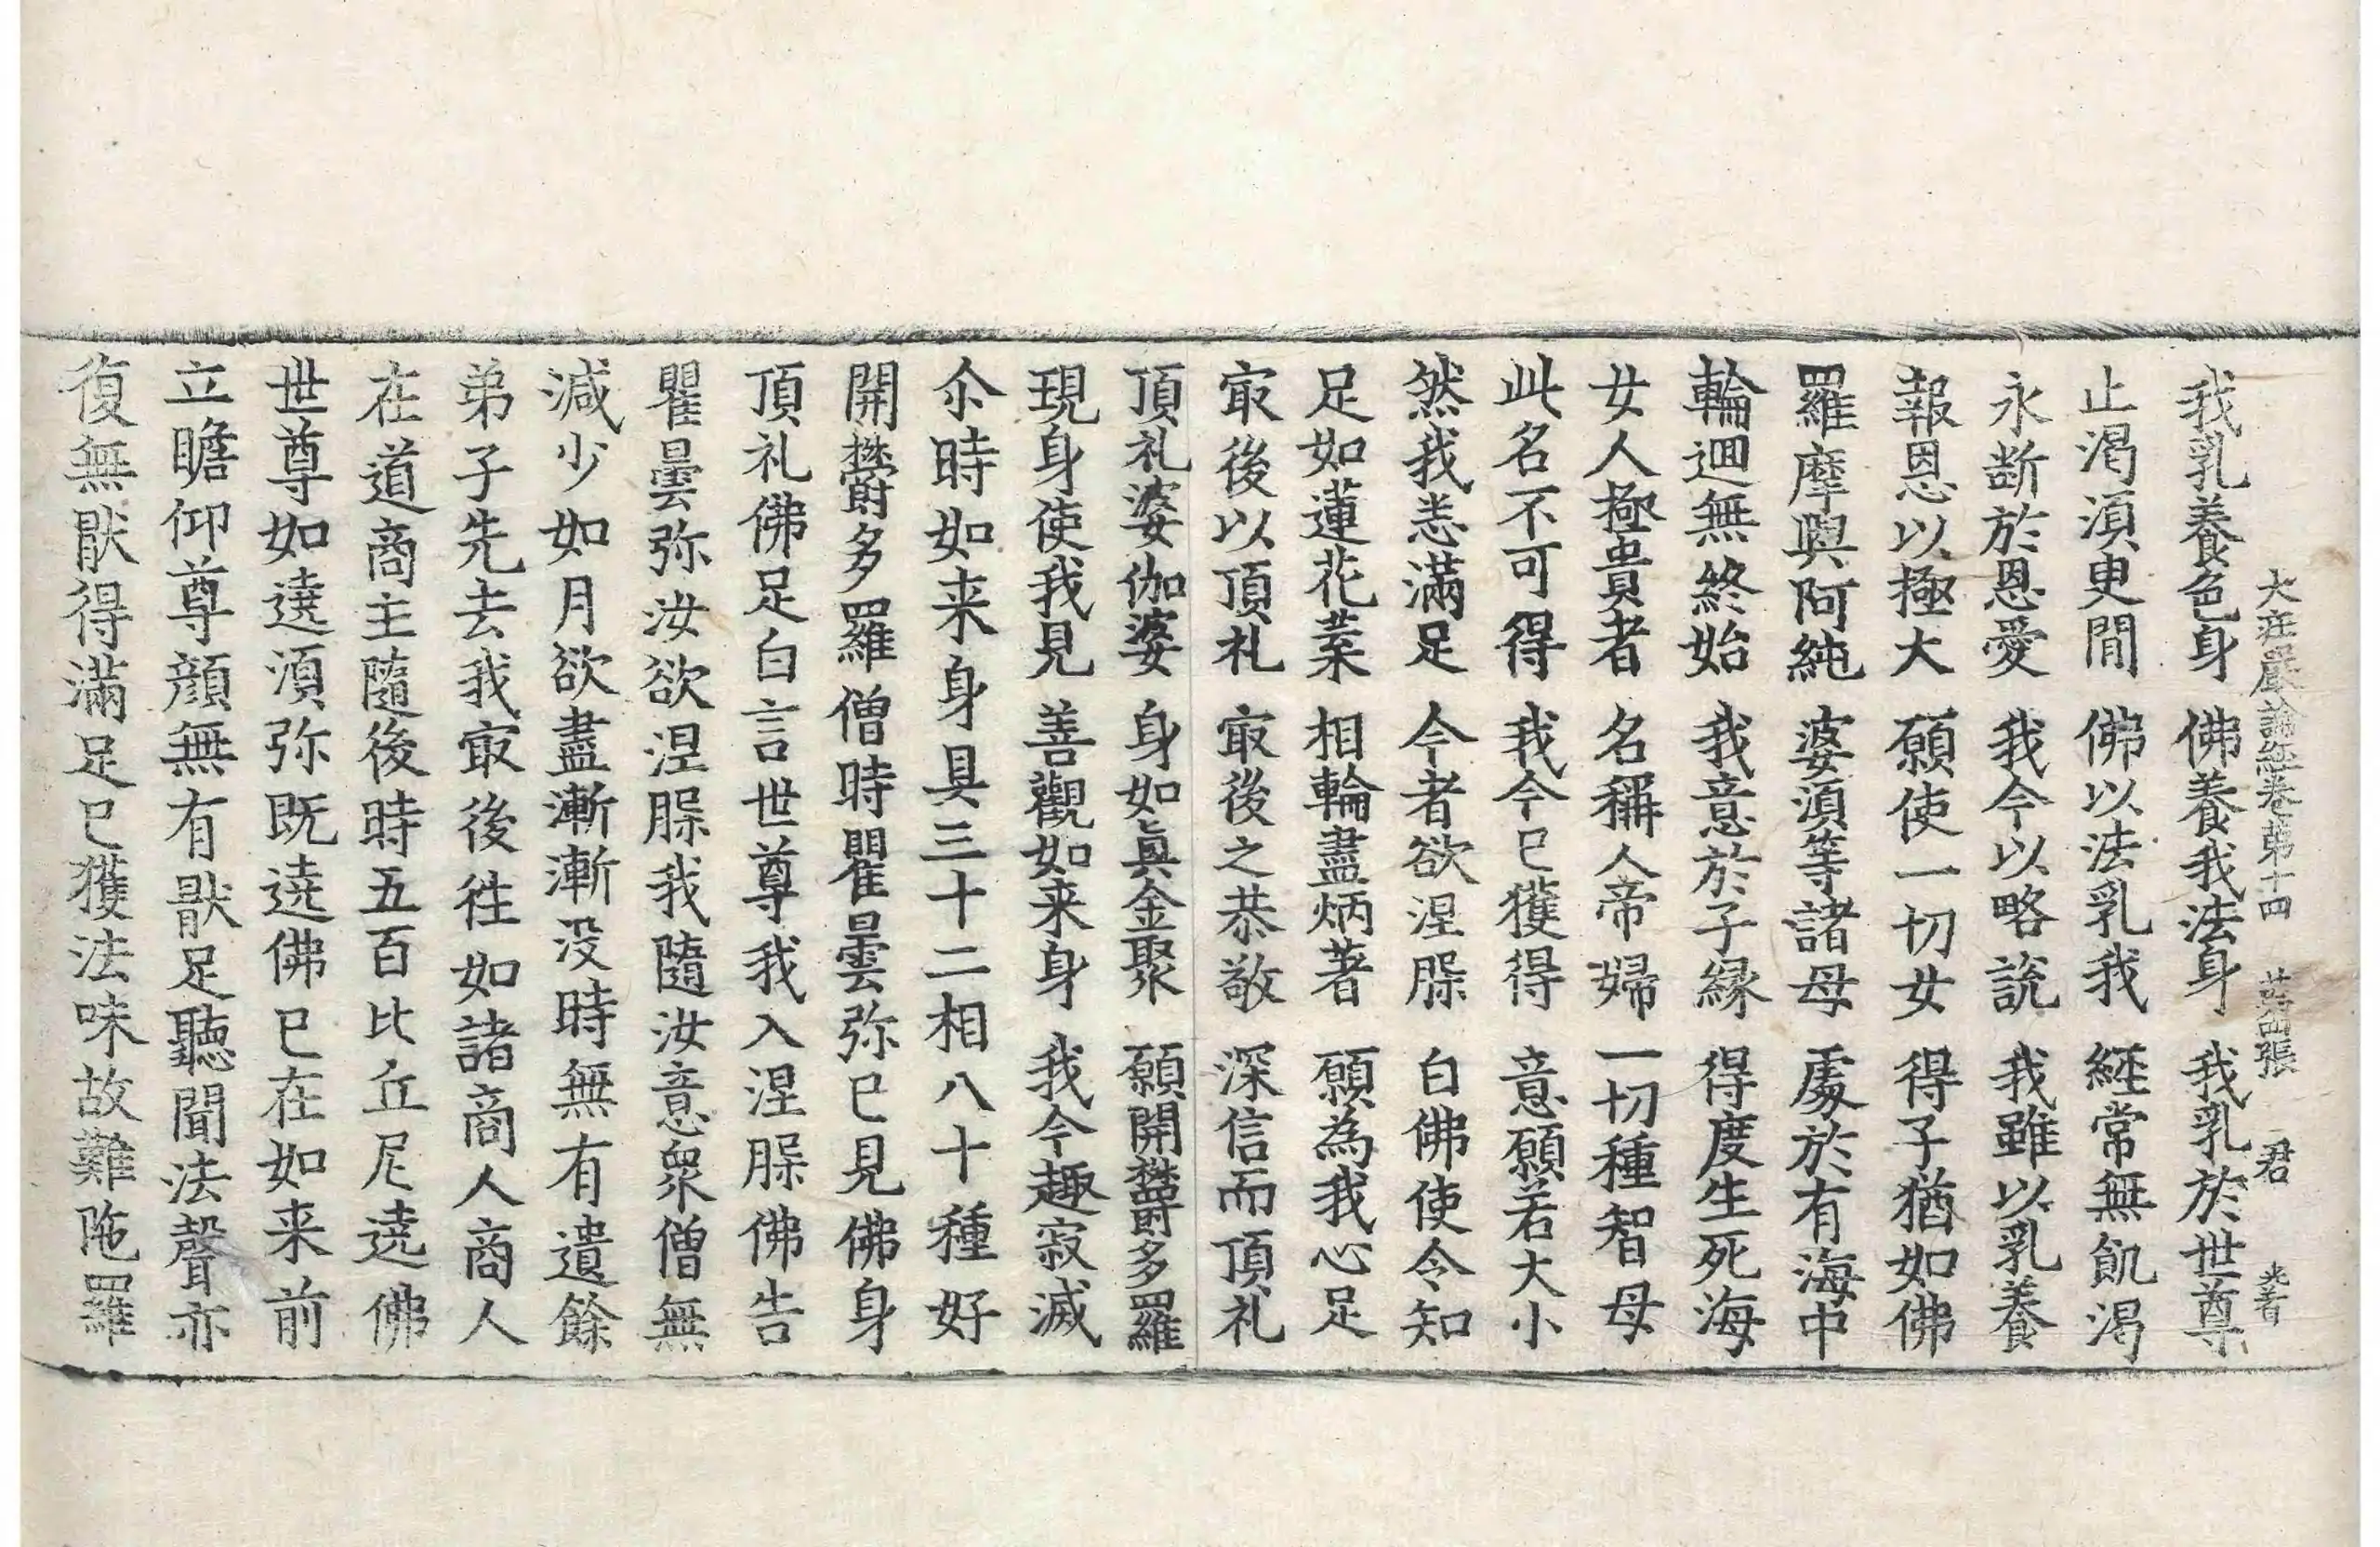 大莊嚴論經卷第十四 第四張 君 光著
我乳養色身 佛養我法身 我乳於世尊
止渴湏臾間 佛以法乳我 經常無飢渴
永斷於恩愛 我今以略說 我雖以乳養
報恩以極大 願使一切女 得子猶如佛
羅摩與阿純 婆湏等諸母 處於有海中
輪迴無終始 我意於子緣 得度生死海
女人極貴者 名稱人帝婦 一切種智母
此名不可得 我今已獲得 意願若大小
然我悉滿足 今者欲涅腂 白佛使令知
足如蓮花葉 相輪盡炳著 願為我心足
㝡後以頂礼 㝡後之恭敬 深信而頂礼
頂礼婆伽婆 身如真金聚 願開欝多羅
現身使我見 善觀如来身 我今趣寂滅
尒時如来身具三十二相八十種好
開欝多羅僧時瞿曇弥已見佛身
頂礼佛足白言世尊我入涅腂佛告
瞿曇弥汝欲涅腂我隨汝意衆僧無
減少如月欲盡漸漸没時無有遺餘
弟子先去我㝡後徃如諸商人商人
在道商主隨後時五百比丘尼遶佛
世尊如遶湏弥既遶佛已在如来前
立瞻仰尊顔無有猒足聽聞法聲亦
復無猒得滿足已獲法味故難陁羅